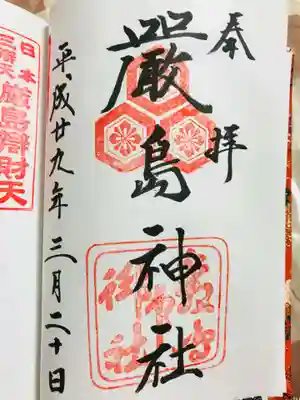 奉拝
嚴島神社
平成廿九年三月二十日
日本三辨天
嚴島辨財天